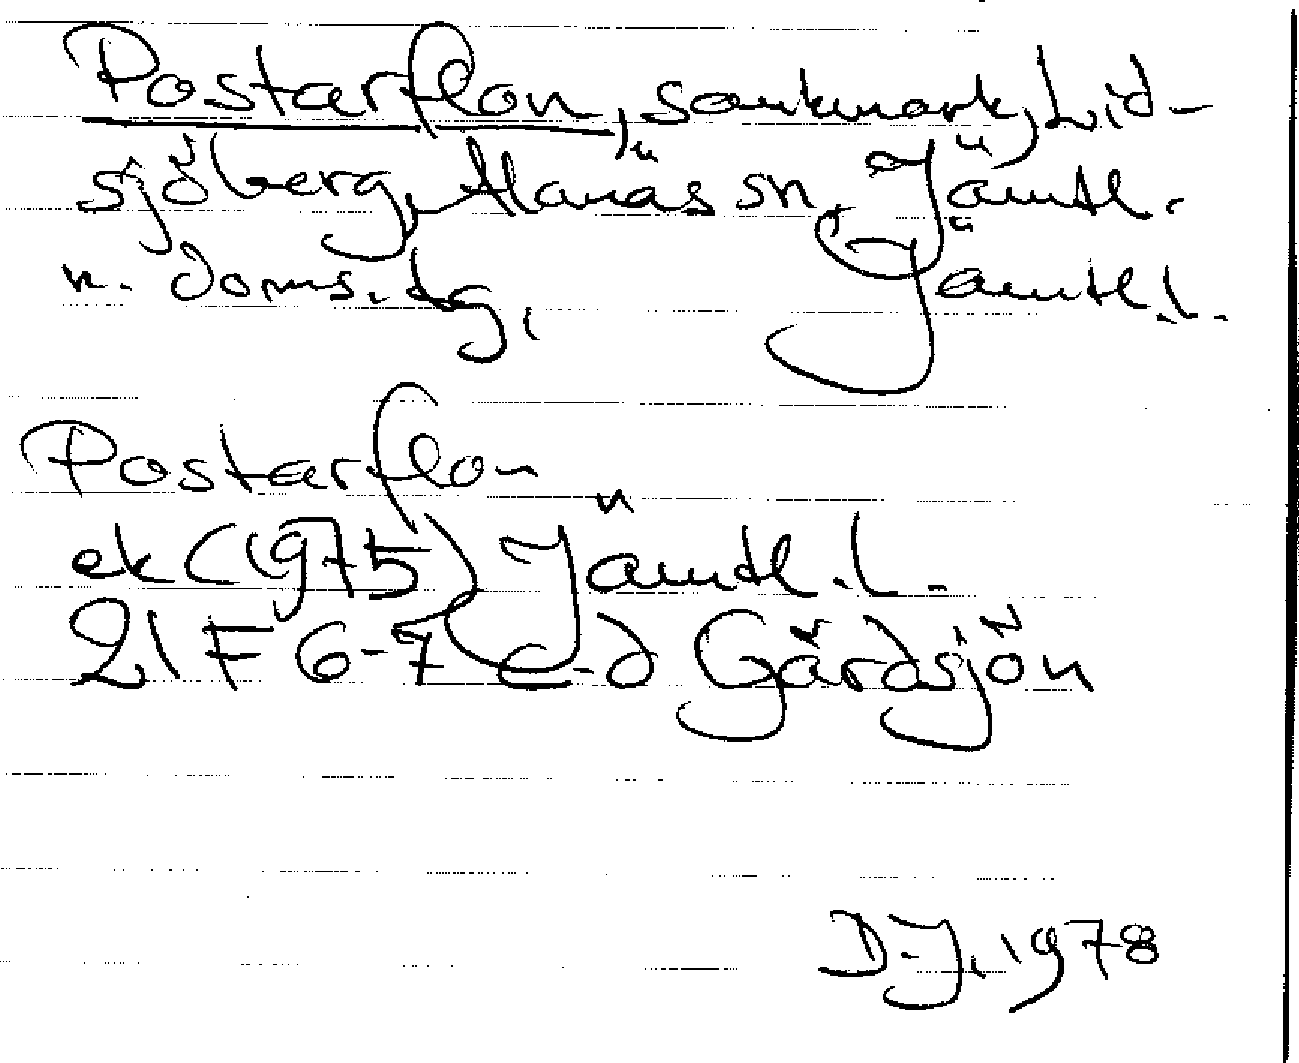 Postarflon, sankmark, Lid-
sjöberg, Alanäs sn, Jämtl.
n. doms.dg, Jämtl.l.
Postarflon
ek (1975) Jämtl.l.
21 F 6-7 c-d Gårdsjön
D.J. 1978